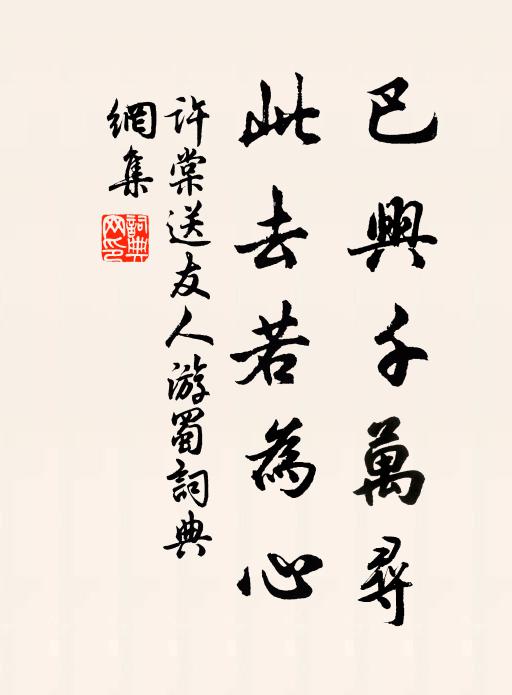 巴興千萬尋
此去若為心
許棠送友人游蜀詞典
網集
詞典網印